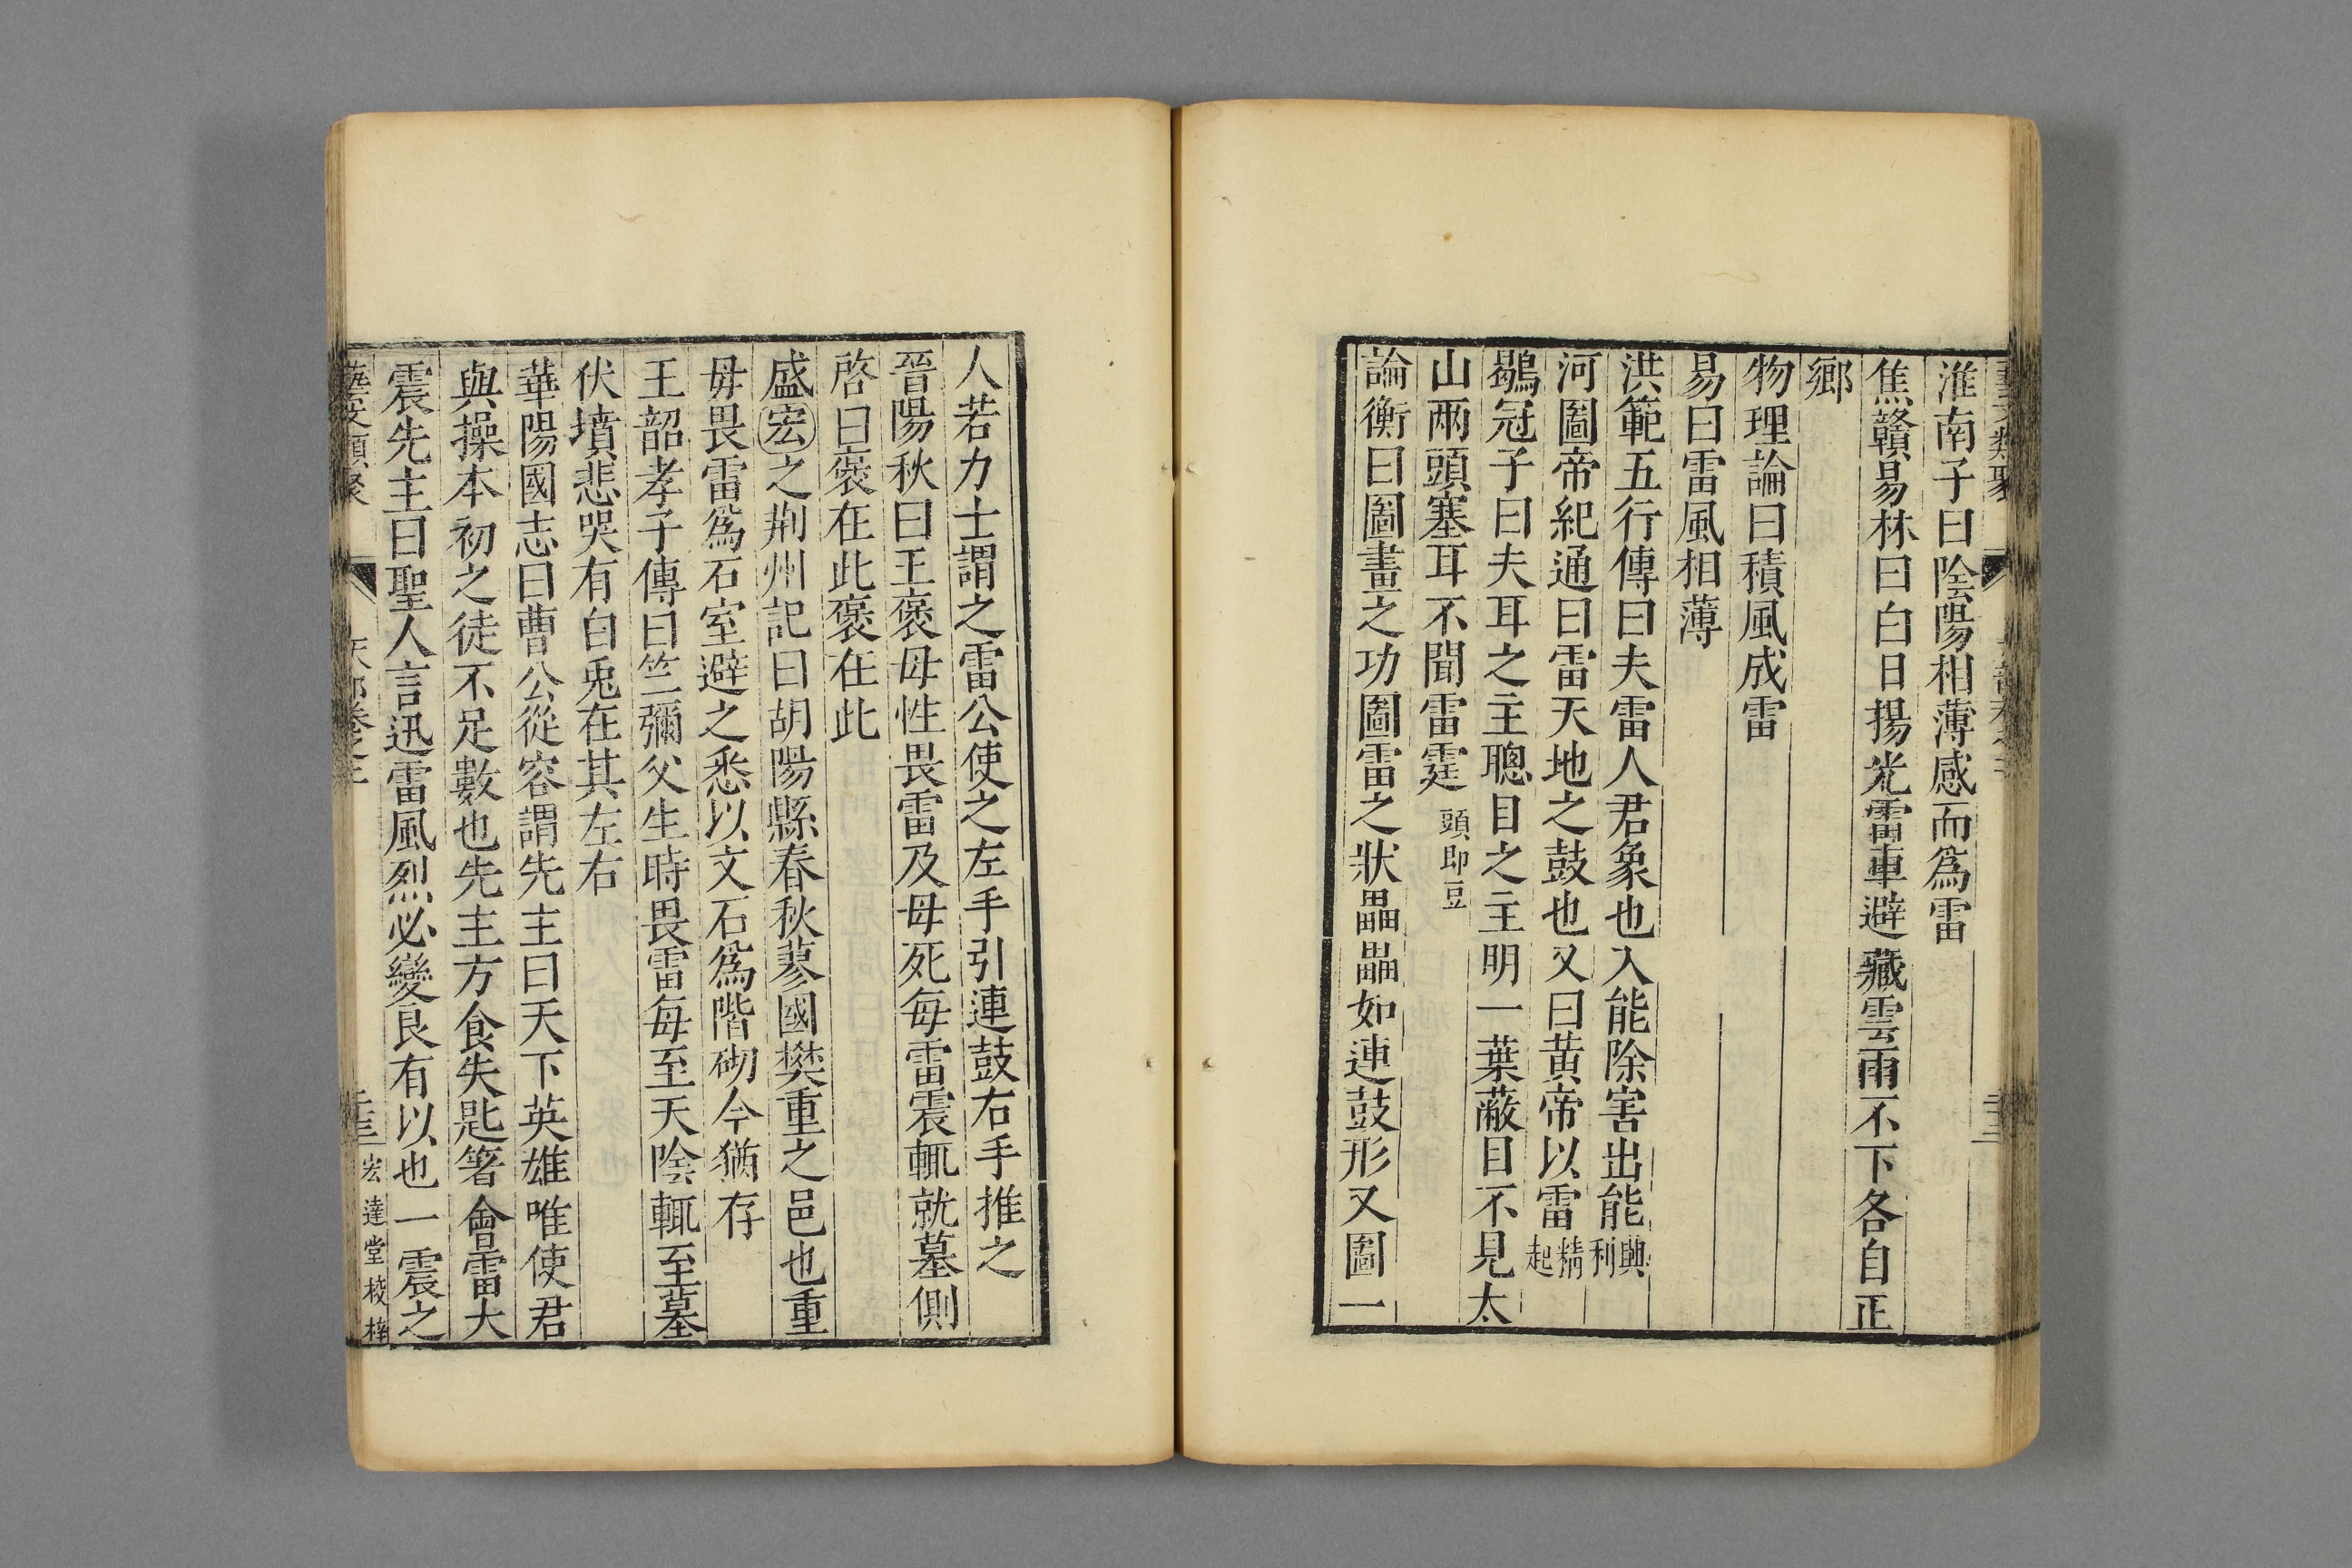 淮南子曰陰陽相薄感而爲雷
焦贛易林曰白日揚光雷車避藏雲雨不下各自正
鄉
物理論曰積風成雷
易曰雷風相薄
洪範五行傳曰夫雷人君象也入能除害出能興利
河圖帝紀通曰雷天地之鼓也又曰黃帝以雷精起
鶡冠子曰夫耳之主聰目之主明一葉蔽目不見太
山兩頭塞耳不聞雷霆頭即豆
論衡曰圖畫之功圖雷之狀畾畾如連鼓形又圖一
人若力士謂之雷公使之左手引連鼓右手推之
晉陽秋曰王褒母性畏雷及母死每雷震輒就墓側
啓曰褒在此褒在此
盛宏之荆州記曰胡陽縣春秋蓼國樊重之邑也重
母畏雷爲石室避之悉以文石爲階砌今猶存
王韶孝子傳曰竺彌父生時畏雷每至天陰輒至墓
伏墳悲哭有白兎在其左右
華陽國志曰曹公從容謂先主曰天下英雄唯使君
與操本初之徒不足數也先主方食失匙箸會雷大
震先主曰聖人言迅雷風烈必變良有以也一震之
藝文類聚 天部卷之二 宏達堂校梓